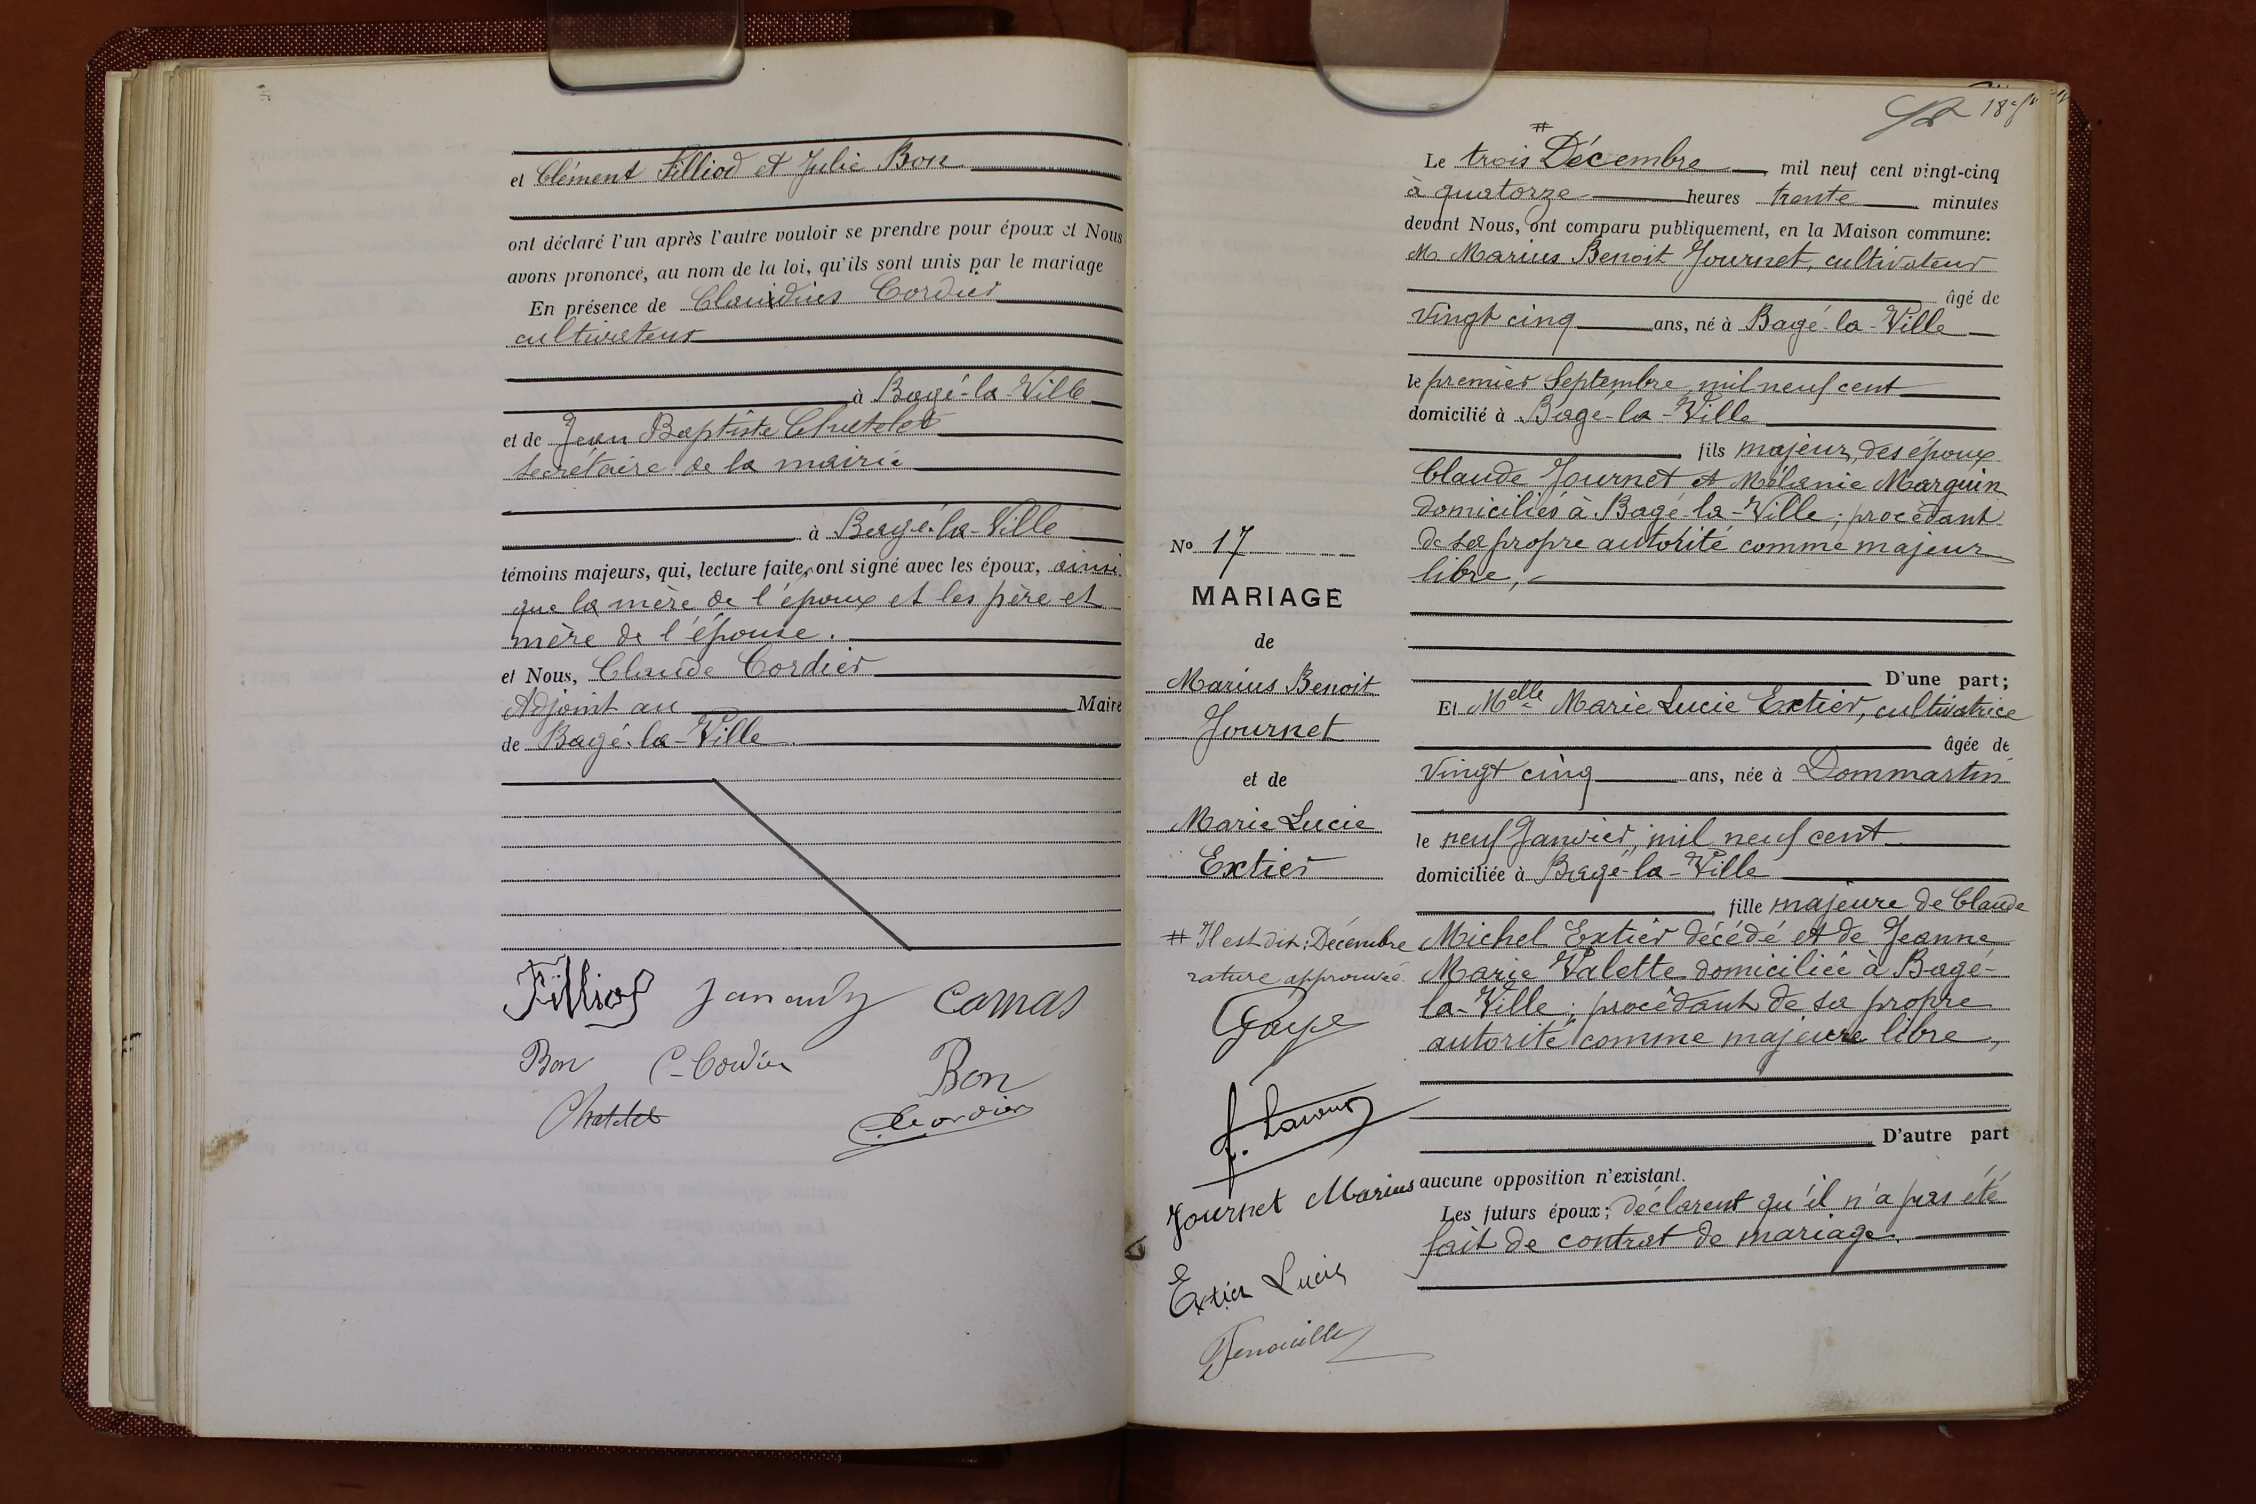 et Clément Filliod et Julie Bon
ont déclaré l'un après l'autre vouloir se prendre pour époux et Nous
avons prononcé, au nom de la loi, qu'ils sont unis par le mariage
En présence de Claudius Cordier
cultivateur
à Bagé-la-Ville
et de Jean Baptiste Chatelet
secrétaire de la mairie
à Bagé-la-Ville
témoins majeurs, qui, lecture faite, ont signé avec les époux, ainsi
que la mère de l'époux et les père et
mère de l'épouse.
et Nous, Claude Cordier
Adjoint au Maire
de Bagé-la-Ville
Filliod Camas
Bon C. Cordier Bon
Chatelet Cordier
#
Le trois Décembre mil neuf cent vingt-cinq
à quatorze heures trente minutes
devant Nous, ont comparu publiquement, en la Maison commune:
M Marius Benoit Journet, cultivateur
âgé de
vingt cinq ans, né à Bagé-la-Ville
le premier Septembre mil neuf cent
domicilié à Bagé-la-Ville
fils majeur, des époux
Claude Journet et Mélanie Marguin
domiciliés à Bagé-la-Ville; procédant
de sa propre autorité comme majeur
libre,
D'une part;
Et Melle Marie Lucie Extier, cultivatrice
âgée de
vingt cinq ans, née à Dommartin
le neuf Janvier, mil neuf cent
domiciliée à Bagé-la-Ville
fille majeure de Claude
Michel Extier décédé et de Jeanne
Marie Valette domiciliée à Bagé-
la-Ville; procédant de sa propre
autorité comme majeure libre,
D'autre part
aucune opposition n'existant.
Les futurs époux; déclarent qu'il n'a pas été
fait de contrat de mariage.
No 17
MARIAGE
de
Marius Benoit
Journet
et de
Marie Lucie
Extier
# Il est dit: Décembre
rature approuvée.
Journet Marius
Extier Lucie